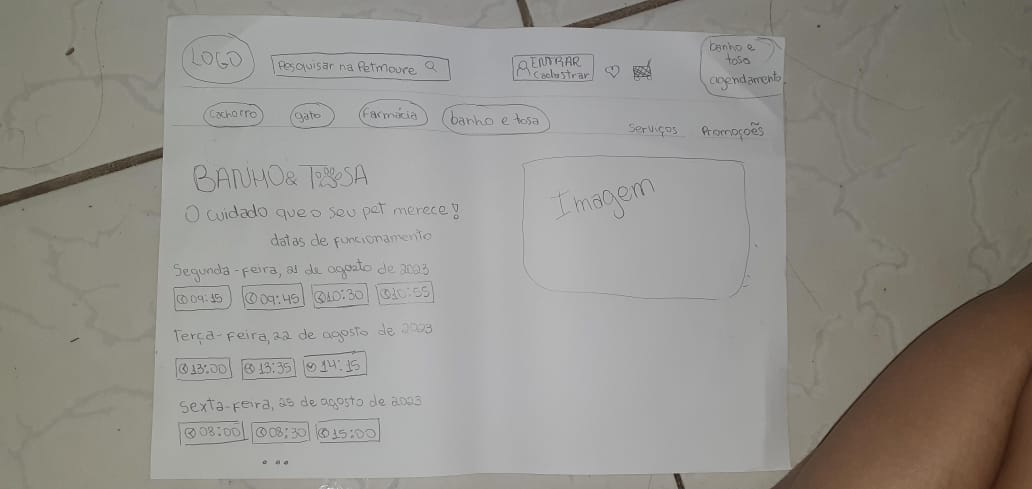 LOGO
Pesquisar na Petmoure
ENTRAR
Cadastrar
banho e
tosa
agendamento
cachorro
gato
Farmácia
banho e tosa
Serviços
Promoções
BANHO & TOSA
O cuidado que o seu pet merece!
datas de funcionamento
Segunda-feira, 21 de agosto de 2023
09:15 09:45 10:30 10:55
Terça-Feira, 22 de agosto de 2023
13:00 13:35 14:15
Sexta-Feira, 25 de agosto de 2023
08:00 08:30 15:00
...
Imagem